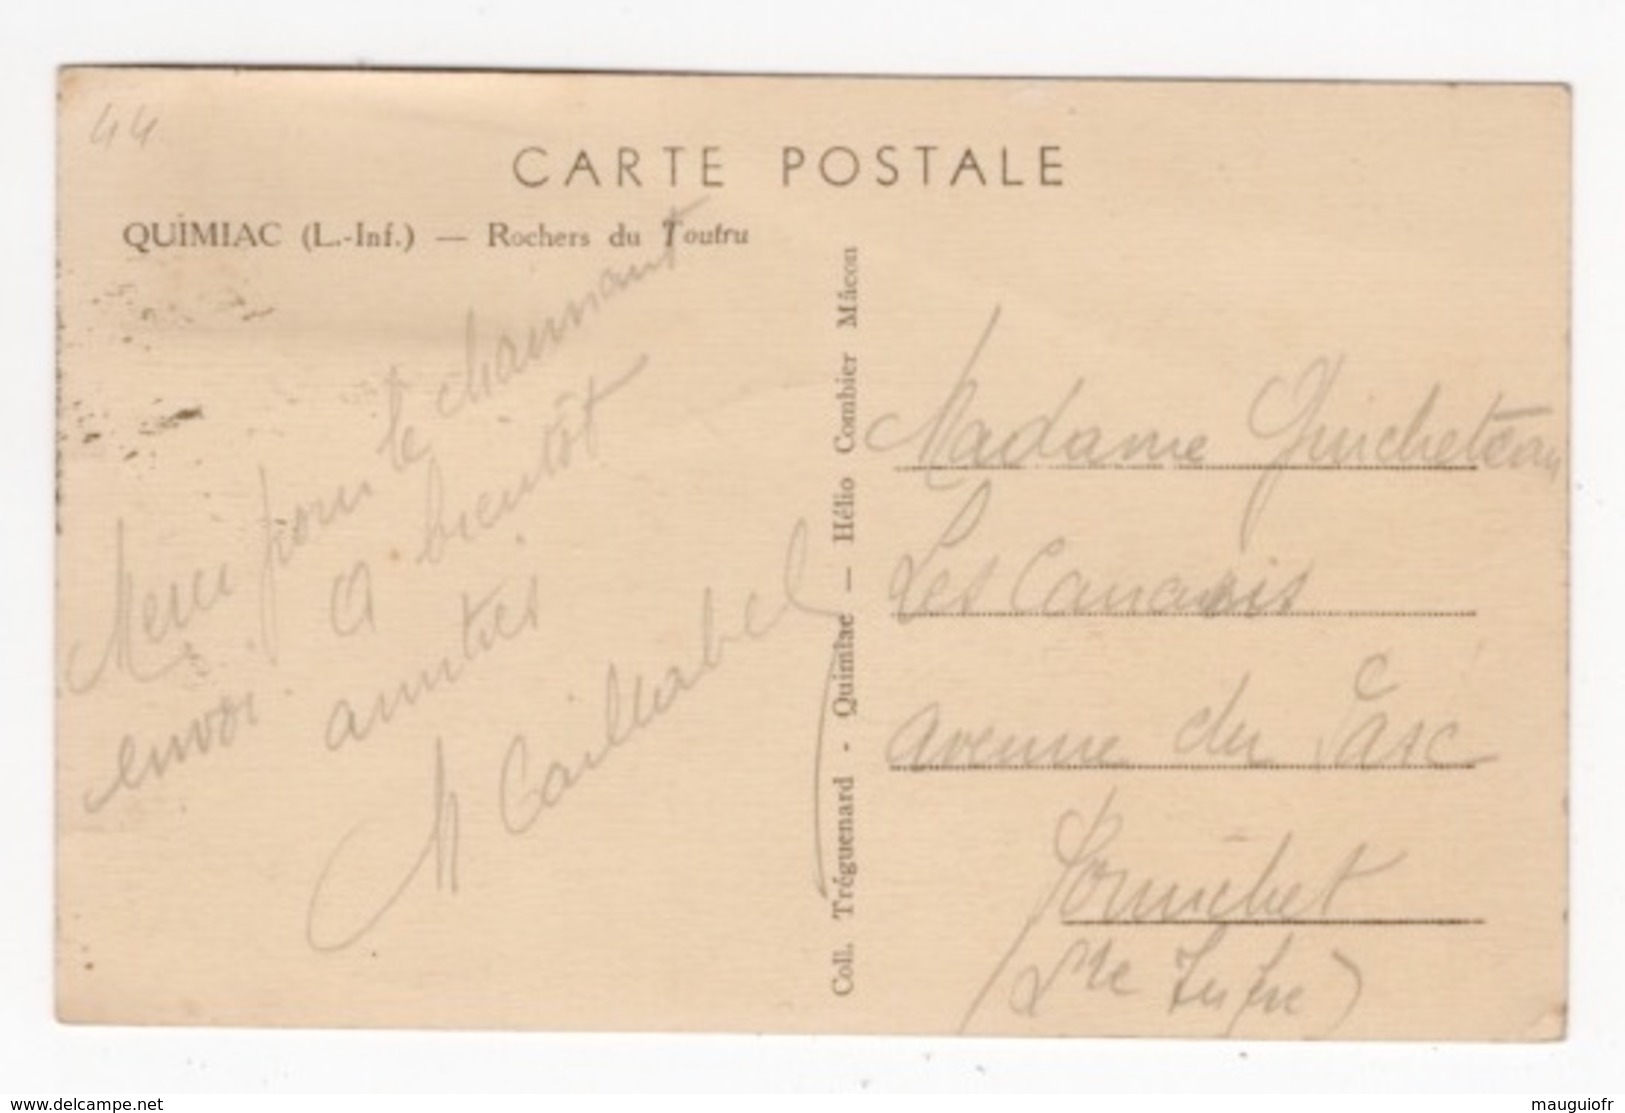 44
CARTE POSTALE
QUIMIAC (L.-Inf.) — Rochers du Toutru
Merci pour le charmant
envoi. A bientôt
amitiés
M Cailleabel
Coll. Tréguenard - Quimiac — Hélio Combier Mâcon
Madame Guicheteau
Les Canaris
Avenue du Parc
Pornichet
(Lre Infre)
www.delcampe.net
mauguiofr